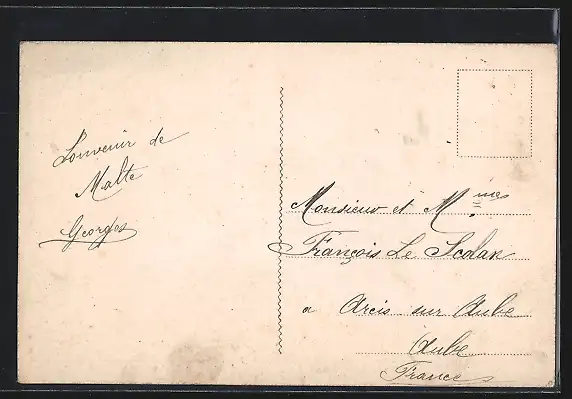 Souvenir de
Malte
Georges
Monsieur et M.mes
François Le Scolan
a Arcis sur Aube
Aube
France